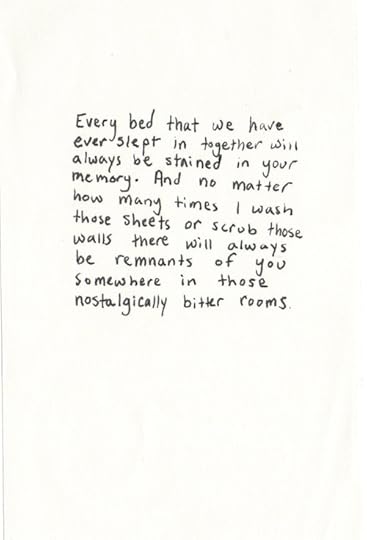 Every bed that we have
ever slept in together will
always be stained in your
memory. And no matter
how many times I wash
those sheets or scrub those
walls there will always
be remnants of you
somewhere in those
nostalgically bitter rooms.